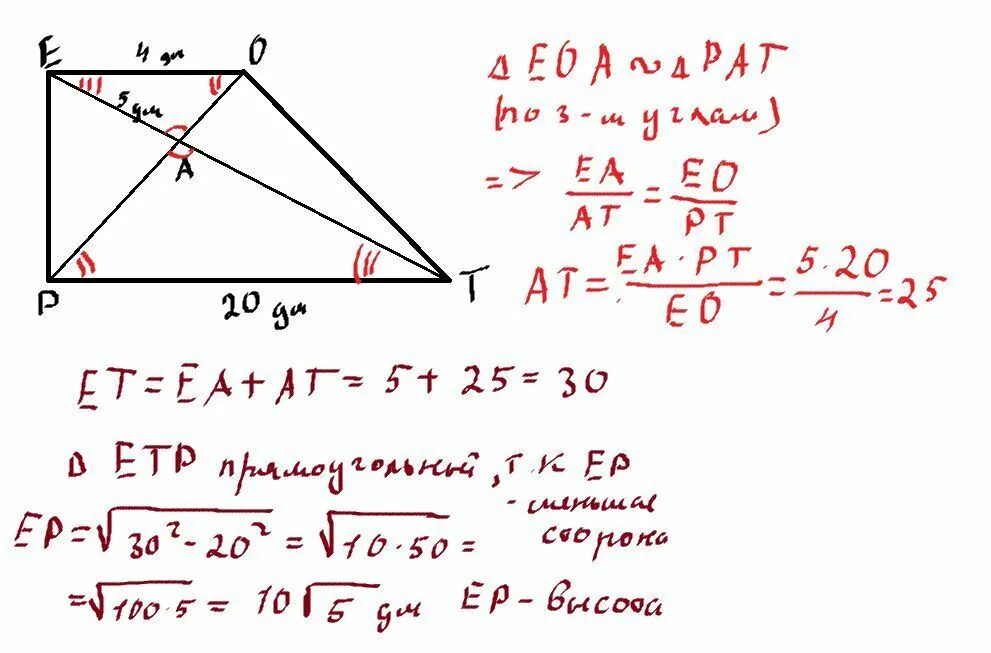 E 4 дм O
5 дм
A
P 20 дм T
Δ EOA ~ Δ PAT
(по 3-м углам)
=> EA/AT = EO/PT
AT = EA · PT / EO = 5·20 / 4 = 25
ET = EA + AT = 5 + 25 = 30
Δ ETP прямоугольный, т.к EP
- меньшая
сторона
EP = √30² - 20² = √10·50 =
= √100·5 = 10√5 дм EP - высота